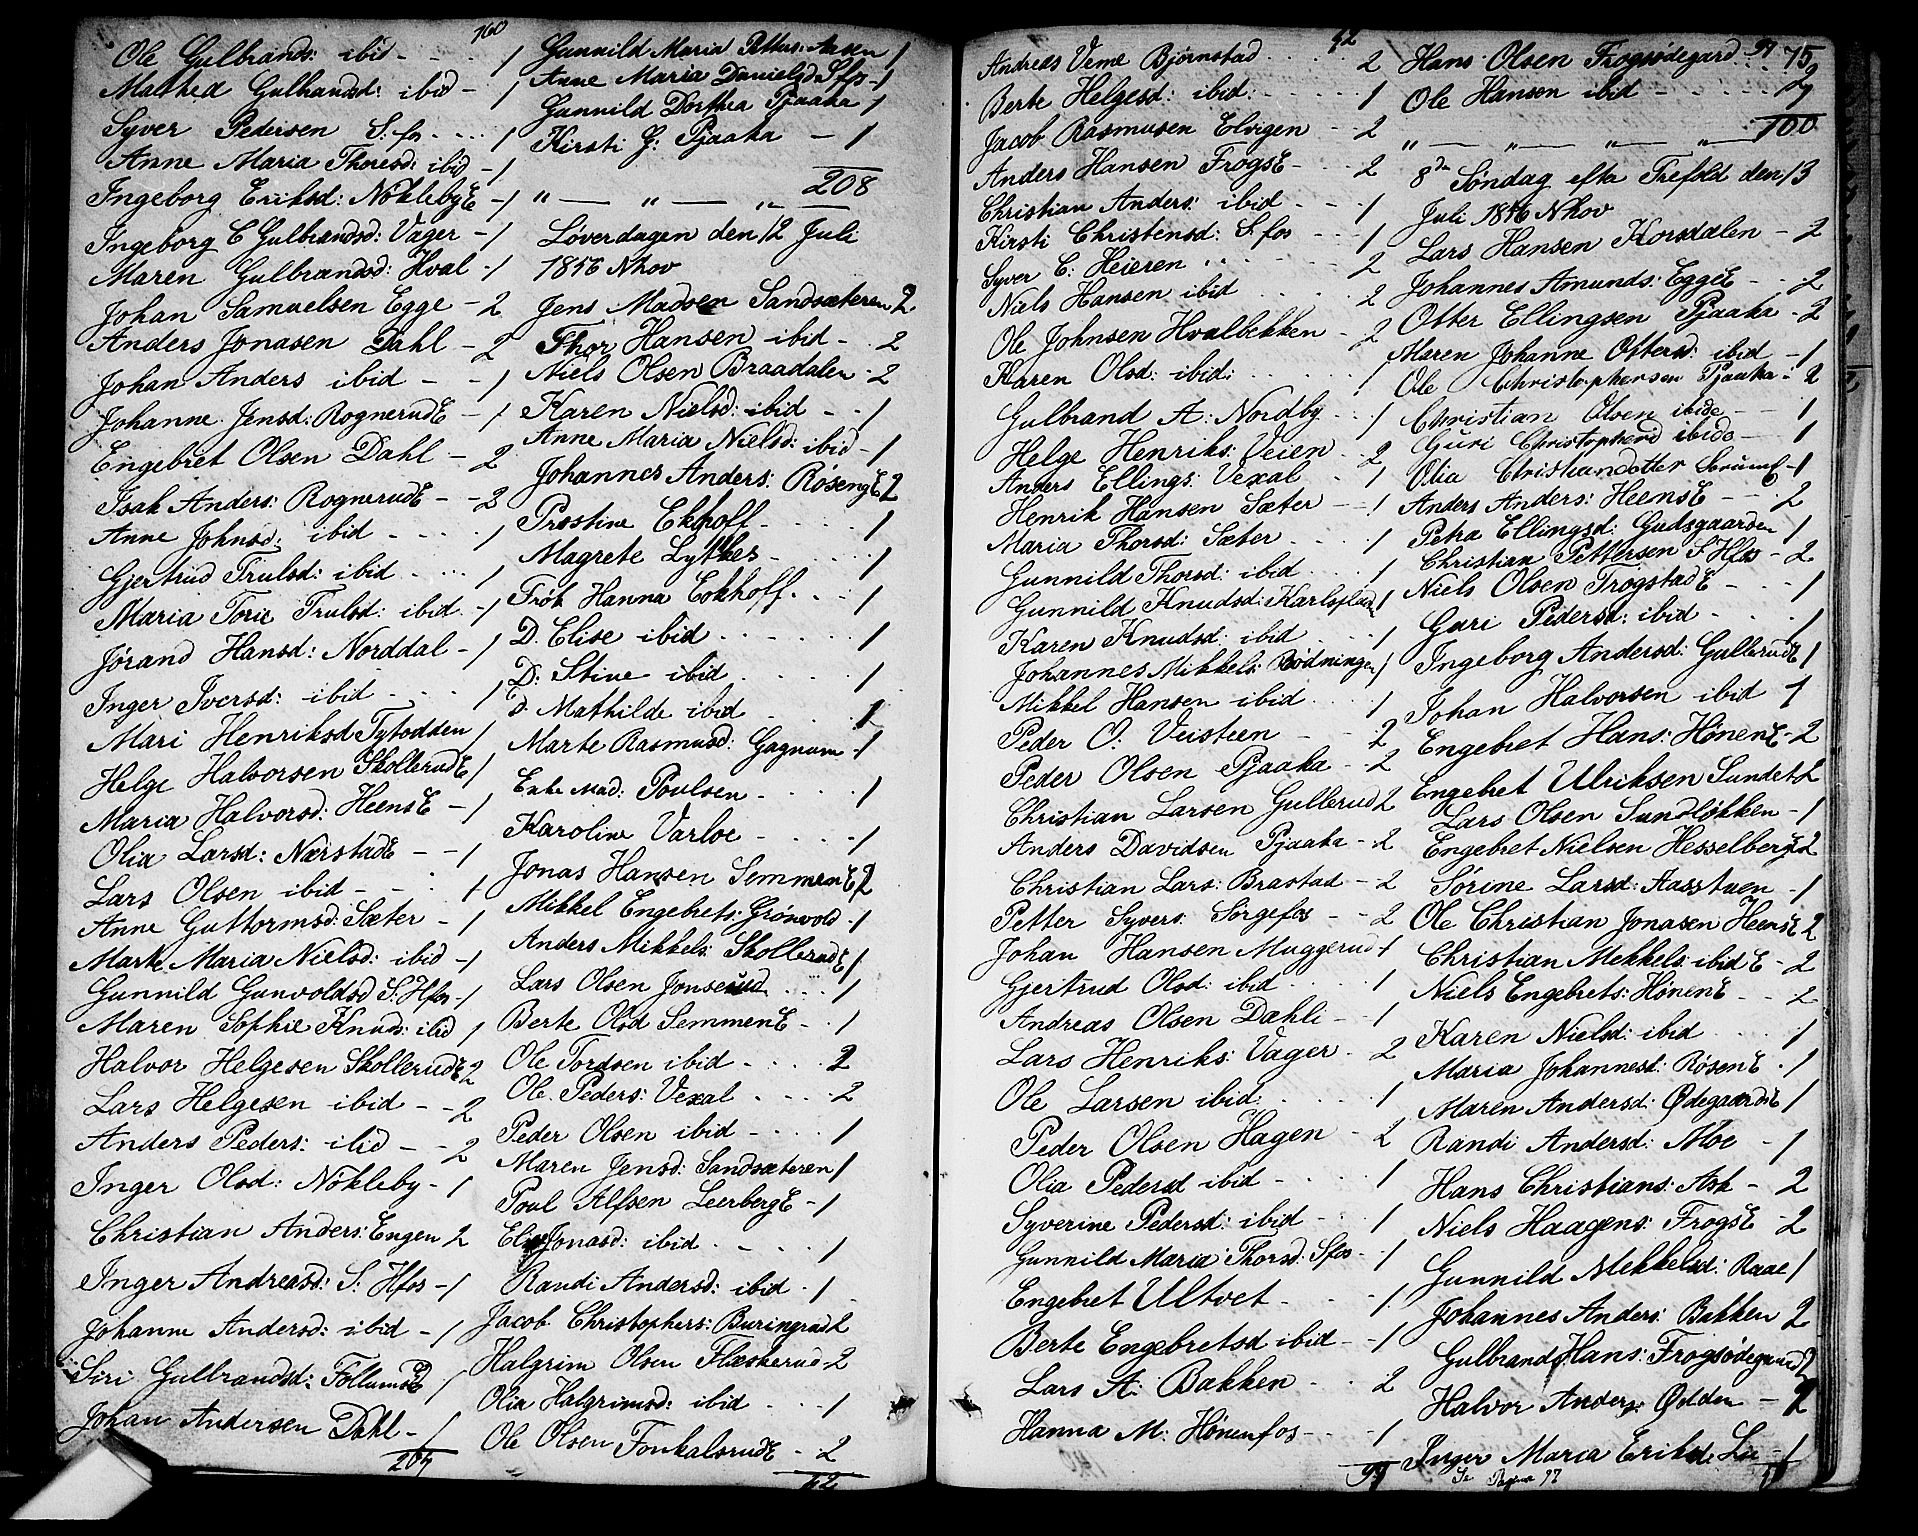 160
Ole Gulbrands: ibid - - - 1
Mathea Gulbrandsd: ibid - 1
Syver Pedersen S: fos - - - 1
Anne Maria Thoresd: ibid - 1
Ingeborg Eriksd: NøklebyE - 1
Ingeborg E Gulbrandsd: Vager - 1
Maren Gulbrandsd: Hval - 1
Johan Samuelsen Egge - 2
Anders Jonasen Dahl - 2
Johan Anders ibid - - 1
Johanne Jensd: RognerudE - 1
Engebret Olsen Dahl - 2
Isak Anders: RognerudE - - 2
Anne Johnsd: ibid - - - 1
Gjertrud Trulsd: ibid - - - 1
Maria Torie Trulsd: ibid - 1
Jørand Hansd: Norddal - 1
Inger Iversd: ibid - - - 1
Mari Henriksd Tytodden 1
Helge Halvorsen SkollerudE 1
Maria Halvorsd: HeensE - 1
Olia Larsd: NærstadE - - 1
Lars Olsen ibid - - - 1
Anne Guttormsd: Sæter - 1
Marte Maria Nielsd: ibid - 1
Gunnild Gunvoldsd S: Hfos - 1
Maren Sophie Knuds: ibid 1
Halvor Helgesen SkollerudE 2
Lars Helgesen ibid - - 2
Anders Peders: ibid - - 2
Inger Olsd: Nøkleby - 1
Christian Anders: Engen 2
Inger Andreasd: S: Hfos - 1
Johanne Andersd: ibid - 1
Siri Gulbrandsd: FollumsE 1
Johan Andersen Dahl - 1
204
Gunnild Maria Petters: Aasen 1
Anne Maria Danielsd Sfos - 1
Gunnild Dorthea Pjaaka 1
Kirsti G: Pjaaka - 1
208
" — " — "
Løverdagen den 12 Juli
1856 Nkov
Jens Madsen Sandsæteren 2
Thor Hansen ibid - - 2
Niels Olsen Braadalen - 2
Karen Nielsd: ibid - - 1
Anne Maria Nielsd: ibid - 1
Johannes Anders: RøsengE 2
Præstine Ekhoff - - - 1
Magrete Lythes - - - 1
Frøk Hanna Eckhoff - - 1
D. Elise ibid - - - 1
D: Stine ibid - - - 1
D. Mathilde ibid - - - 1
Marte Rasmusd: Gagnum - 1
Enke Mad: Poulsen - - - 1
Karoline Varloe - - - 1
Jonas Hansen SemmenE 2
Mikkel Engebrets: Grønvold - 1
Anders Mikkels: SkollerudE 1
Lars Olsen Jonserud - - 1
Berte Olsd SemmenE - - 1
Ole Tordsen ibid - - - 2
Ole Peders: Vexal - - - 2
Peder Olsen ibid - - - 1
Maren Jensd: Sandsæteren 1
Poul Alfsen LeerbergE - 1
Elise Jonasd: ibid - - - 1
Randi Andersd: ibid - 1
Jacob Christophers: Buringrud 2
Halgrim Olsen Flæskerud - 2
Olia Halgrimsd: ibid - - 1
Ole Olsen FonkalsrudE - 2
42
42
Andreas Veme Bjørnstad - - - 2
Berte Helgesd: ibid: - - - 1
Jacob Rasmusen Elvigen - - 2
Anders Hansen FrogsE - - - 2
Christian Anders: ibid - - - 1
Kirsti Christensd: S: fos - - - 1
Syver C: Heieren - - - 2
Niels Hansen ibid - - - 2
Ole Johnsen Hvalbekken - - 2
Karen Olsd: ibid: - - - 1
Gulbrand A: Nordby - - 1
Helge Henriks: Veien - - 2
Anders Ellings: Vexal - - 1
Henrik Hansen Sæter - - 1
Maria Thorsd: Sæter - - - 1
Gunnild Thorsd: ibid - - - 1
Gunnild Knudsd: Karlsplads 1
Karen Knudsd: ibid - - - 1
Johannes Mikkels: Rødningen 1
Mikkel Hansen ibid - - - 1
Peder O: Veisteen - - - 2
Peder Olsen Pjaaka - - 2
Christian Larsen Gullerud 2
Anders Davidsen Pjaaka - - 2
Christian Lars: Brastad - 2
Petter Syvers: Sørgefos - - 2
Johan Hansen Muggerud - 1
Gjertrud Olsd: ibid - - - 1
Andreas Olsen Dæhli - - 1
Lars Henriks: Vager - 2
Ole Larsen ibid - - - 1
Peder Olsen Hagen - 2
Olia Pedersd ibid - - - 1
Syverine Pedersd: ibid - - 1
Gunnild Maria Thorsd: Sfos - - 1
Engebret Ultvet - - - 1
Berte Engebretsd ibid - - 1
Lars A: Bakken - - 2
Hanna M: Hønenfos - - - 1
99
99
Hans Olsen Frogsødegard - - 75
Ole Hansen ibid - - - 2
100
" — " — " — "
8de Søndag efter Trefold den 13
Juli 1856 Nkov
Lars Hansen Korsdalen - 2
Johannes Amunds: EggeE - - 2
Otter Ellingsen Pjaaka - 2
Maren Johanne Ottersd: ibid - 1
Ole Christophersen Pjaaka - 2
Christian Olsen ibid - 1
Guri Christophersd ibid - 1
Olia Christiansdotter - 1
Anders Anders: HeensE - - - 2
Petra Ellingsd: Gudsgaarden 1
Christian Pettersen S Hfos - 2
Niels Olsen TrogstadE - - - 1
Guri Pedersd: ibid - - - 1
Ingeborg Andersd: GullerudE 1
Johan Halvorsen ibid 1
Engebret Hans: HønenE - 2
Engebret Ulriksen Sundet 2
Lars Olsen Sundløkken - 1
Engebret Nielsen HesselbergE 2
Sørine Larsd: Aasstuen - 1
Ole Christian Jonasen HeensE 2
Christian Mekkels: ibid E - 2
Niels Engebrets: HønenE - - 2
Karen Nielsd: ibid - - - 1
Maria Johannesd: RøsenE - 1
Maren Andersd: ØdegaardsE 1
Randi Andersd: Moe - 1
Hans Christians: Ask - 2
Niels Haagens: FrogsE - 2
Gunnild Mekkelsd: Raae 1
Johannes Anders: Bakken 2
Gulbrand Hans: Frogsødegaard 2
Halvor Anders: Odden - 2
Inger Maria Eriksd: Lie - 1
Se Pagina 97